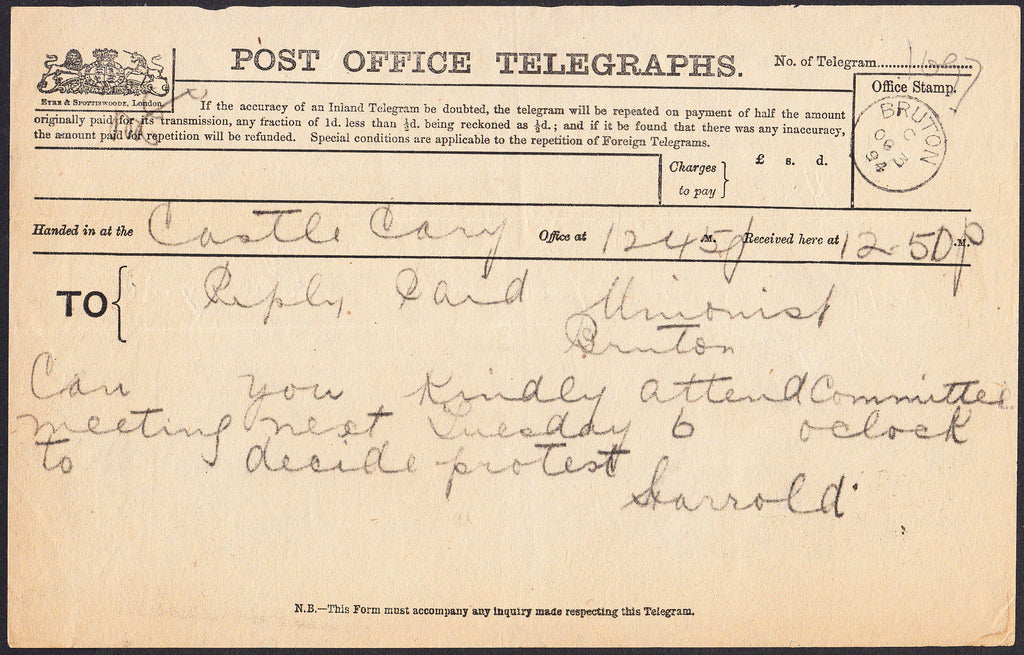 POST OFFICE TELEGRAPHS.
No. of Telegram
Office Stamp.
EYRE & SPOTTISWOODE, London.
If the accuracy of an Inland Telegram be doubted, the telegram will be repeated on payment of half the amount
originally paid for its transmission, any fraction of 1d. less than ½d. being reckoned as ½d.; and if it be found that there was any inaccuracy,
the amount paid for repetition will be refunded. Special conditions are applicable to the repetition of Foreign Telegrams.
BRUTON
C
OC 3
94
Charges to pay } £ s. d.
Handed in at the Castle Cary Office at 12 45 p M. Received here at 12.50 p M.
TO { Reply Paid Unionist
Bruton
Can you Kindly attend Committee
meeting next Tuesday 6 oclock
to decide protest
Harrold
N.B.—This Form must accompany any inquiry made respecting this Telegram.